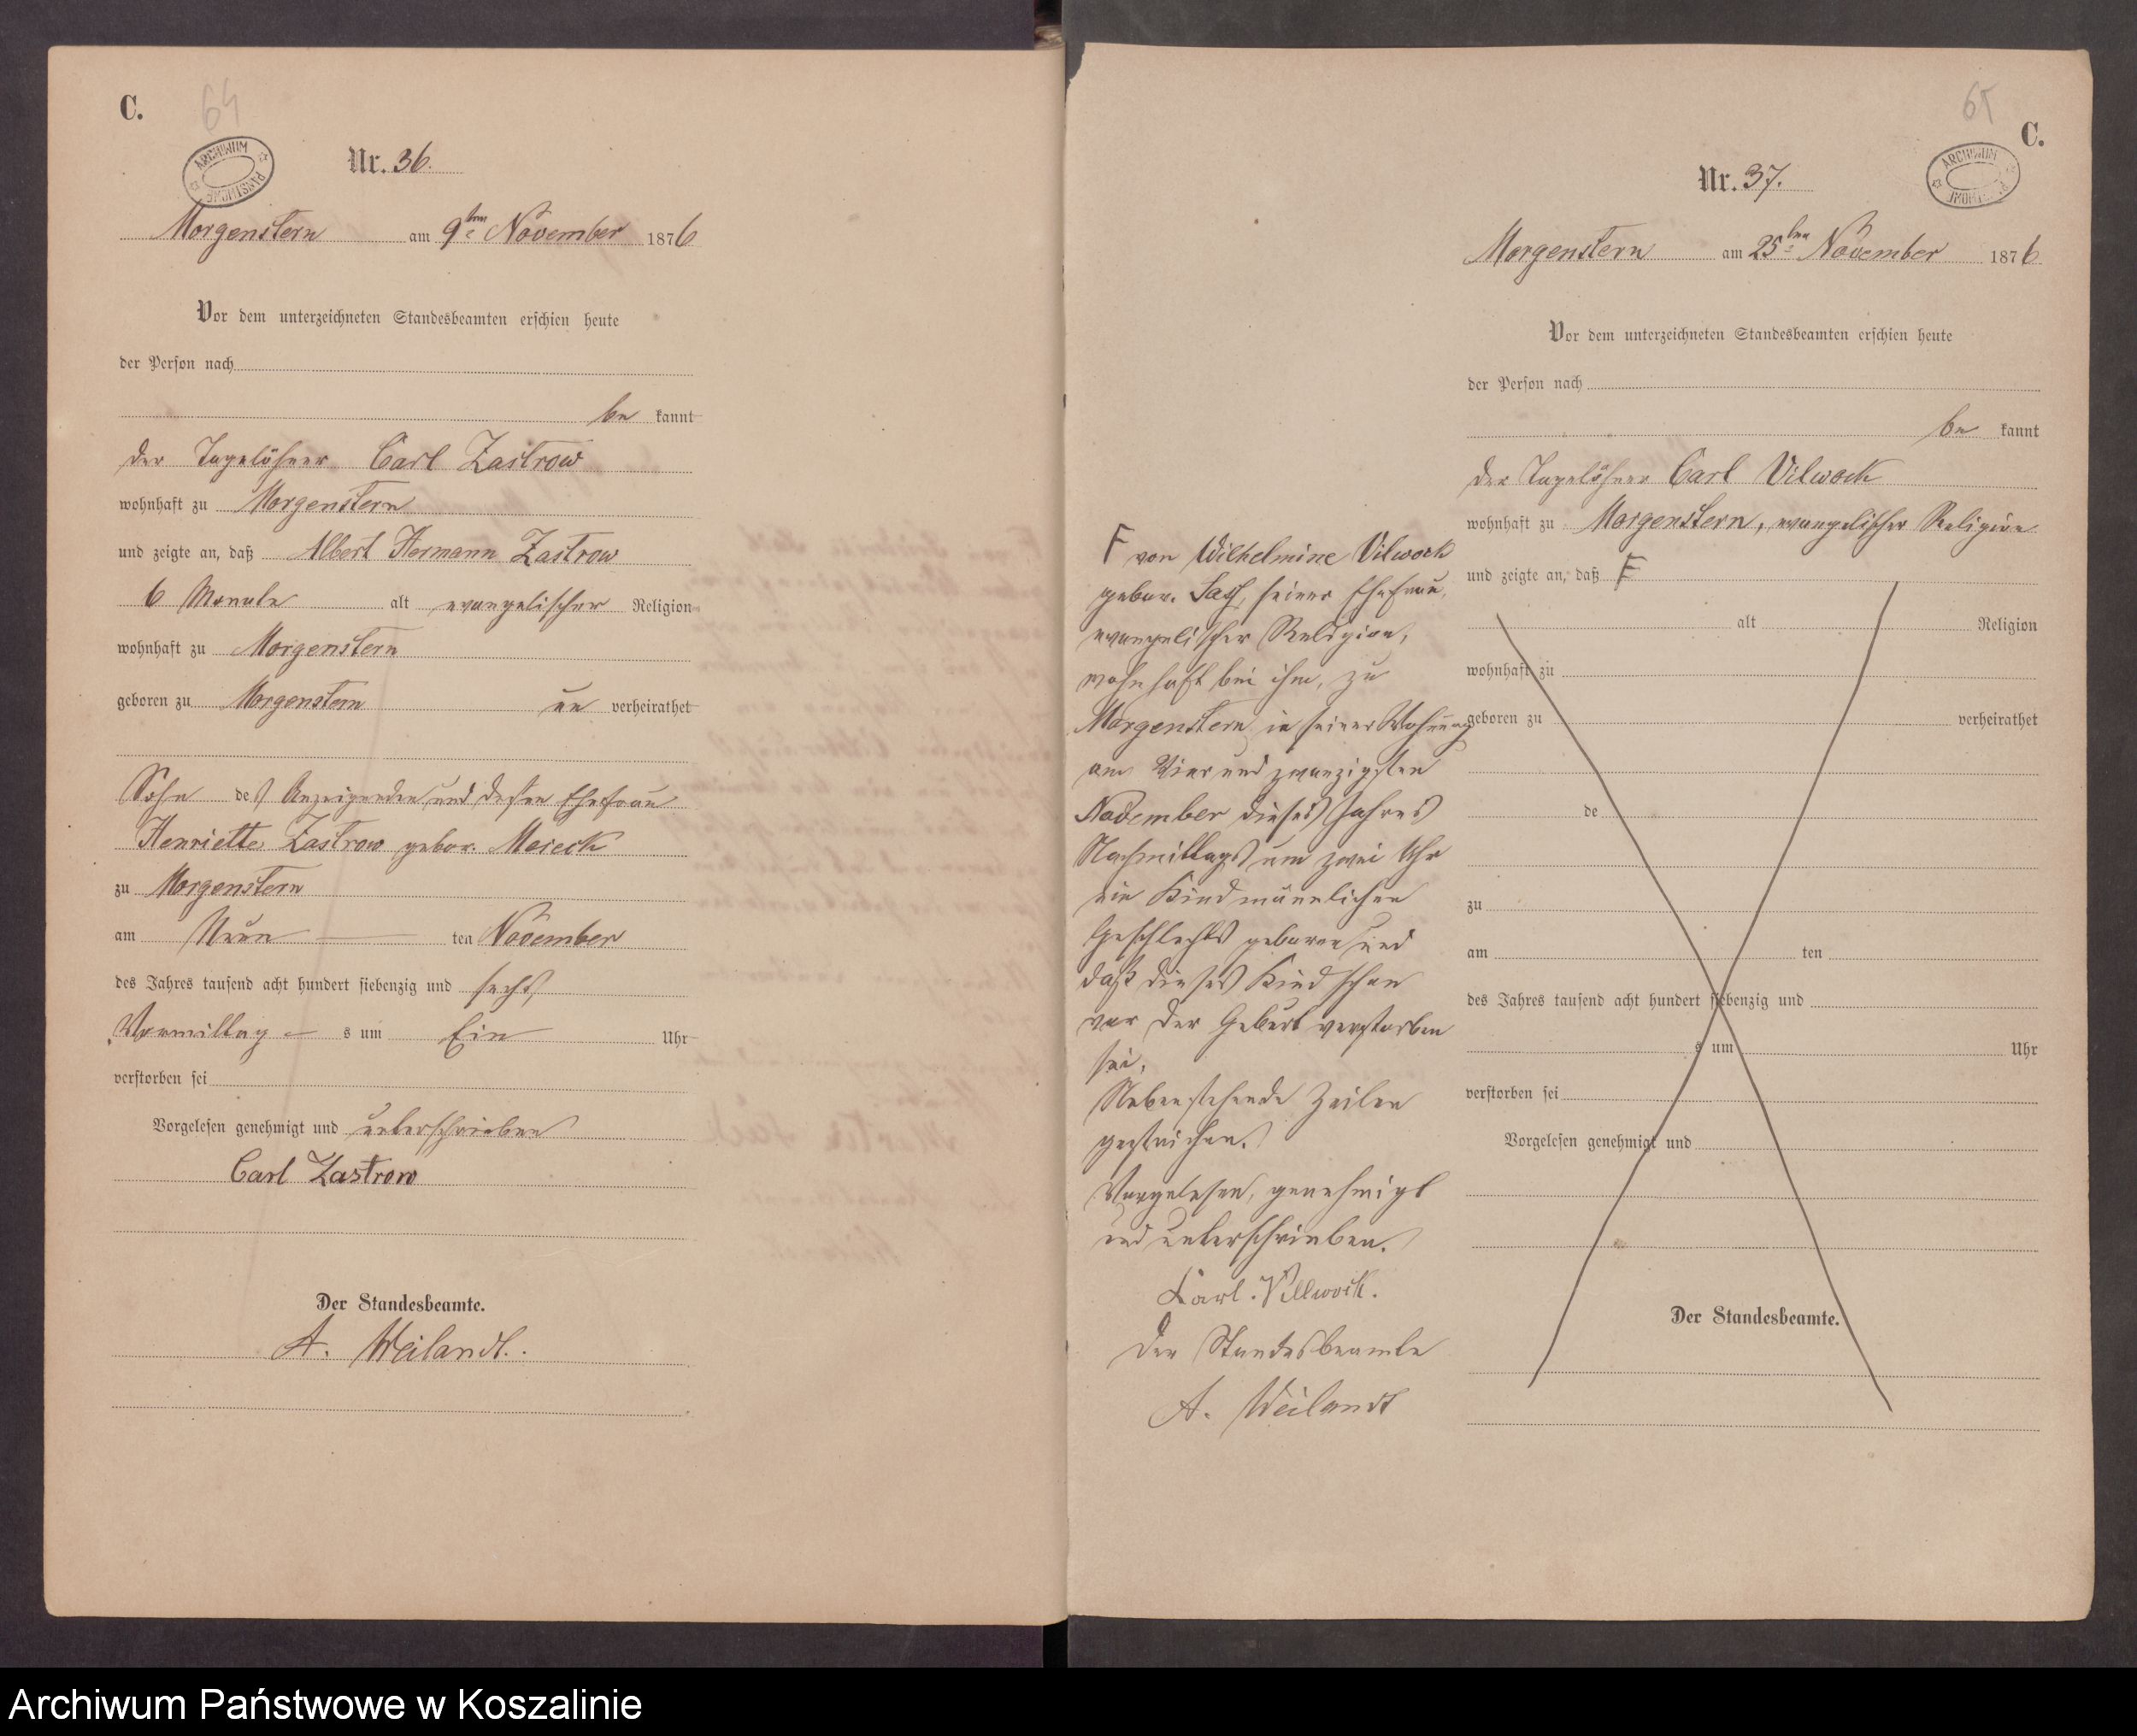 C.
64
ARCHIWUM PAŃSTWOWE
Nr. 36.
Morgenstern am 9ten November 1876
Vor dem unterzeichneten Standesbeamten erschien heute
der Person nach
be kannt
der Tagelöhner Carl Zastrow
wohnhaft zu Morgenstern
und zeigte an, daß Albert Hermann Zastrow
6 Monate alt evangelischer Religion
wohnhaft zu Morgenstern
geboren zu Morgenstern un verheirathet
Sohn des Anzeigenden und dessen Ehefrau
Henriette Zastrow gebor.
zu Morgenstern
am Neun ten November
des Jahres tausend acht hundert siebenzig und sechs,
Vormittag s um Ein Uhr
verstorben sei
Vorgelesen genehmigt und unterschrieben
Carl Zastrow
Der Standesbeamte.
A. Weilandt.
65
C.
ARCHIWUM
Nr. 37.
Morgenstern am 25ten November 1876
Vor dem unterzeichneten Standesbeamten erschien heute
der Person nach
be kannt
der Tagelöhner Carl Vilwock
wohnhaft zu Morgenstern, evangelischer Religion
und zeigte an, daß F
alt Religion
wohnhaft zu
geboren zu verheirathet
de
zu
am ten
des Jahres tausend acht hundert siebenzig und
s um Uhr
verstorben sei
Vorgelesen genehmigt und
Der Standesbeamte.
F von Wilhelmine Vilwock
gebor. seiner Ehefrau,
evangelischer Religion,
wohnhaft bei ihm, zu
Morgenstern in seiner Wohnung
am Vier und zwanzigsten
November dieses Jahres
Nachmittags um zwei Uhr
ein Kind männlichen
Geschlechts geboren und
daß dieses Kind schon
vor der Geburt verstorben
sei.
Nebenstehende Zeilen
gestrichen.
Vorgelesen, genehmigt
und unterschrieben.
Carl. Villwock.
Der Standesbeamte
A. Weilandt
Archiwum Państwowe w Koszalinie